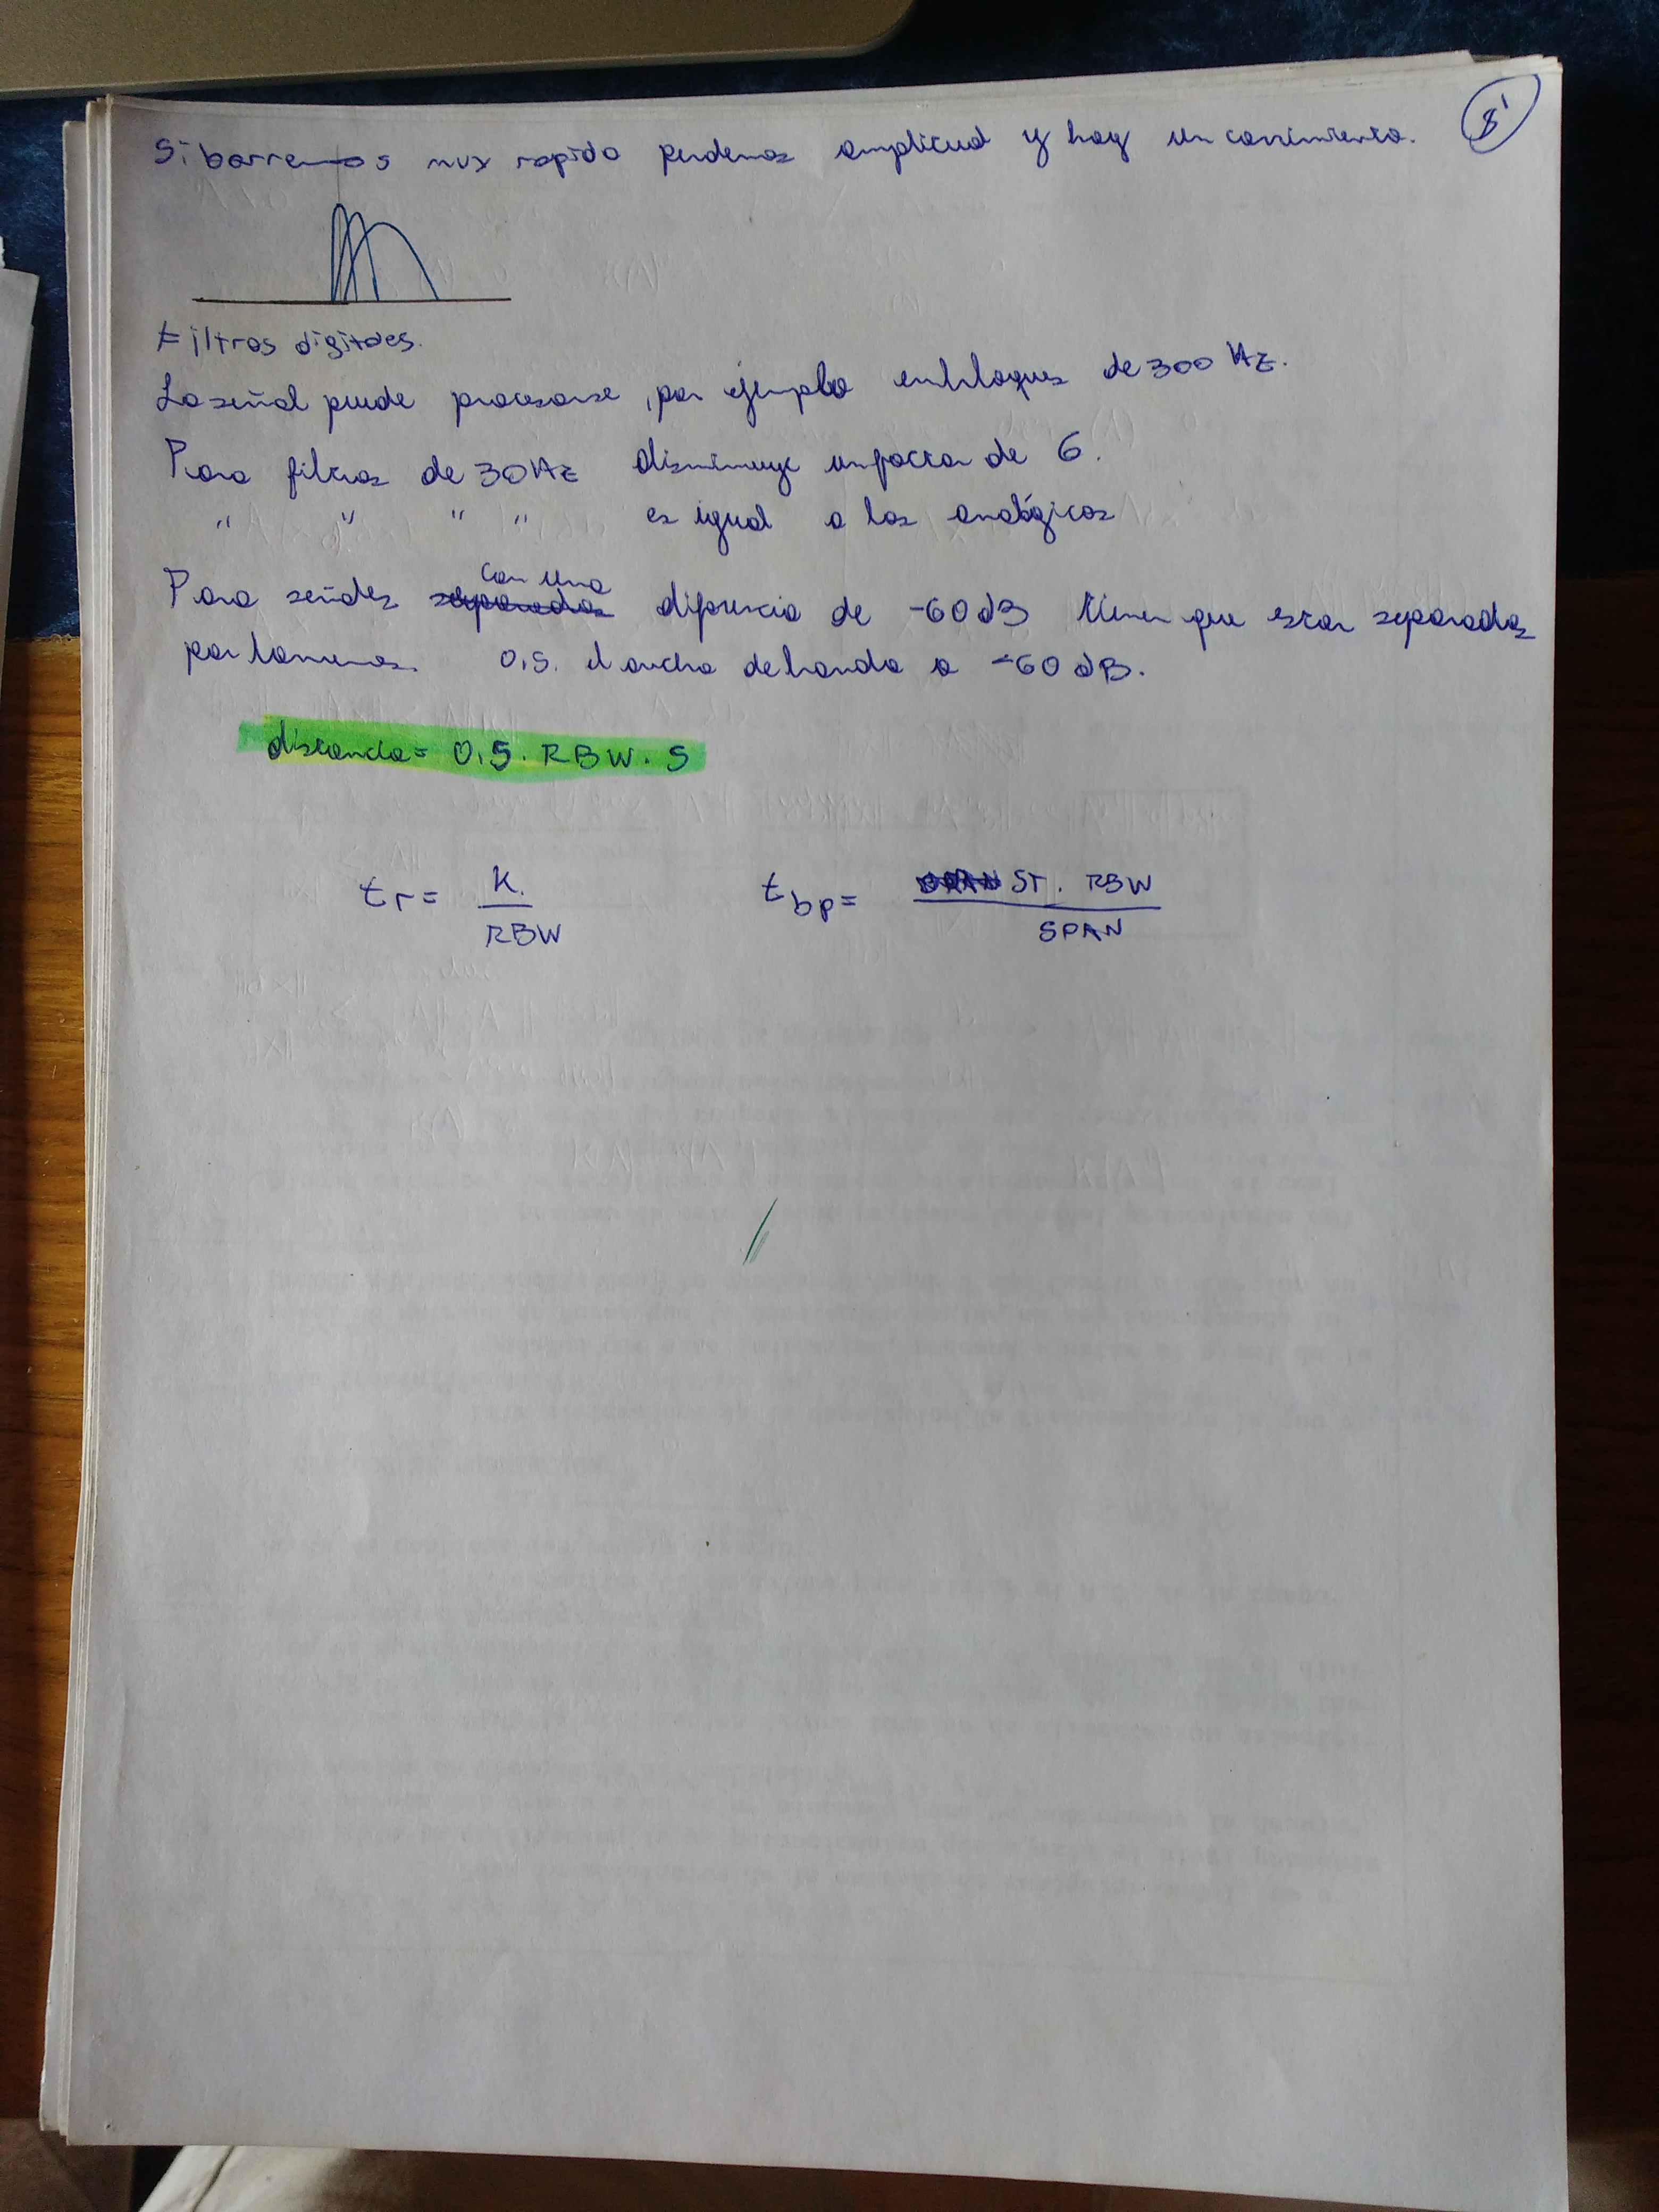 8'
Si barremos muy rapido perdemos amplitud y hay un corrimiento.
Filtros digitales.
La señal puede procesarse, por ejemplo en bloques de 300 Hz.
Para filtros de 30 Hz disminuye un factor de 6.
" " " " es igual a los analógicos
Para señales con una diferencia de -60 dB tienen que estar separadas
por lo menos 0,5. el ancho de banda a -60 dB.
distancia = 0,5. RBW. S
tr = K. / RBW   tbp = ST. RBW / SPAN